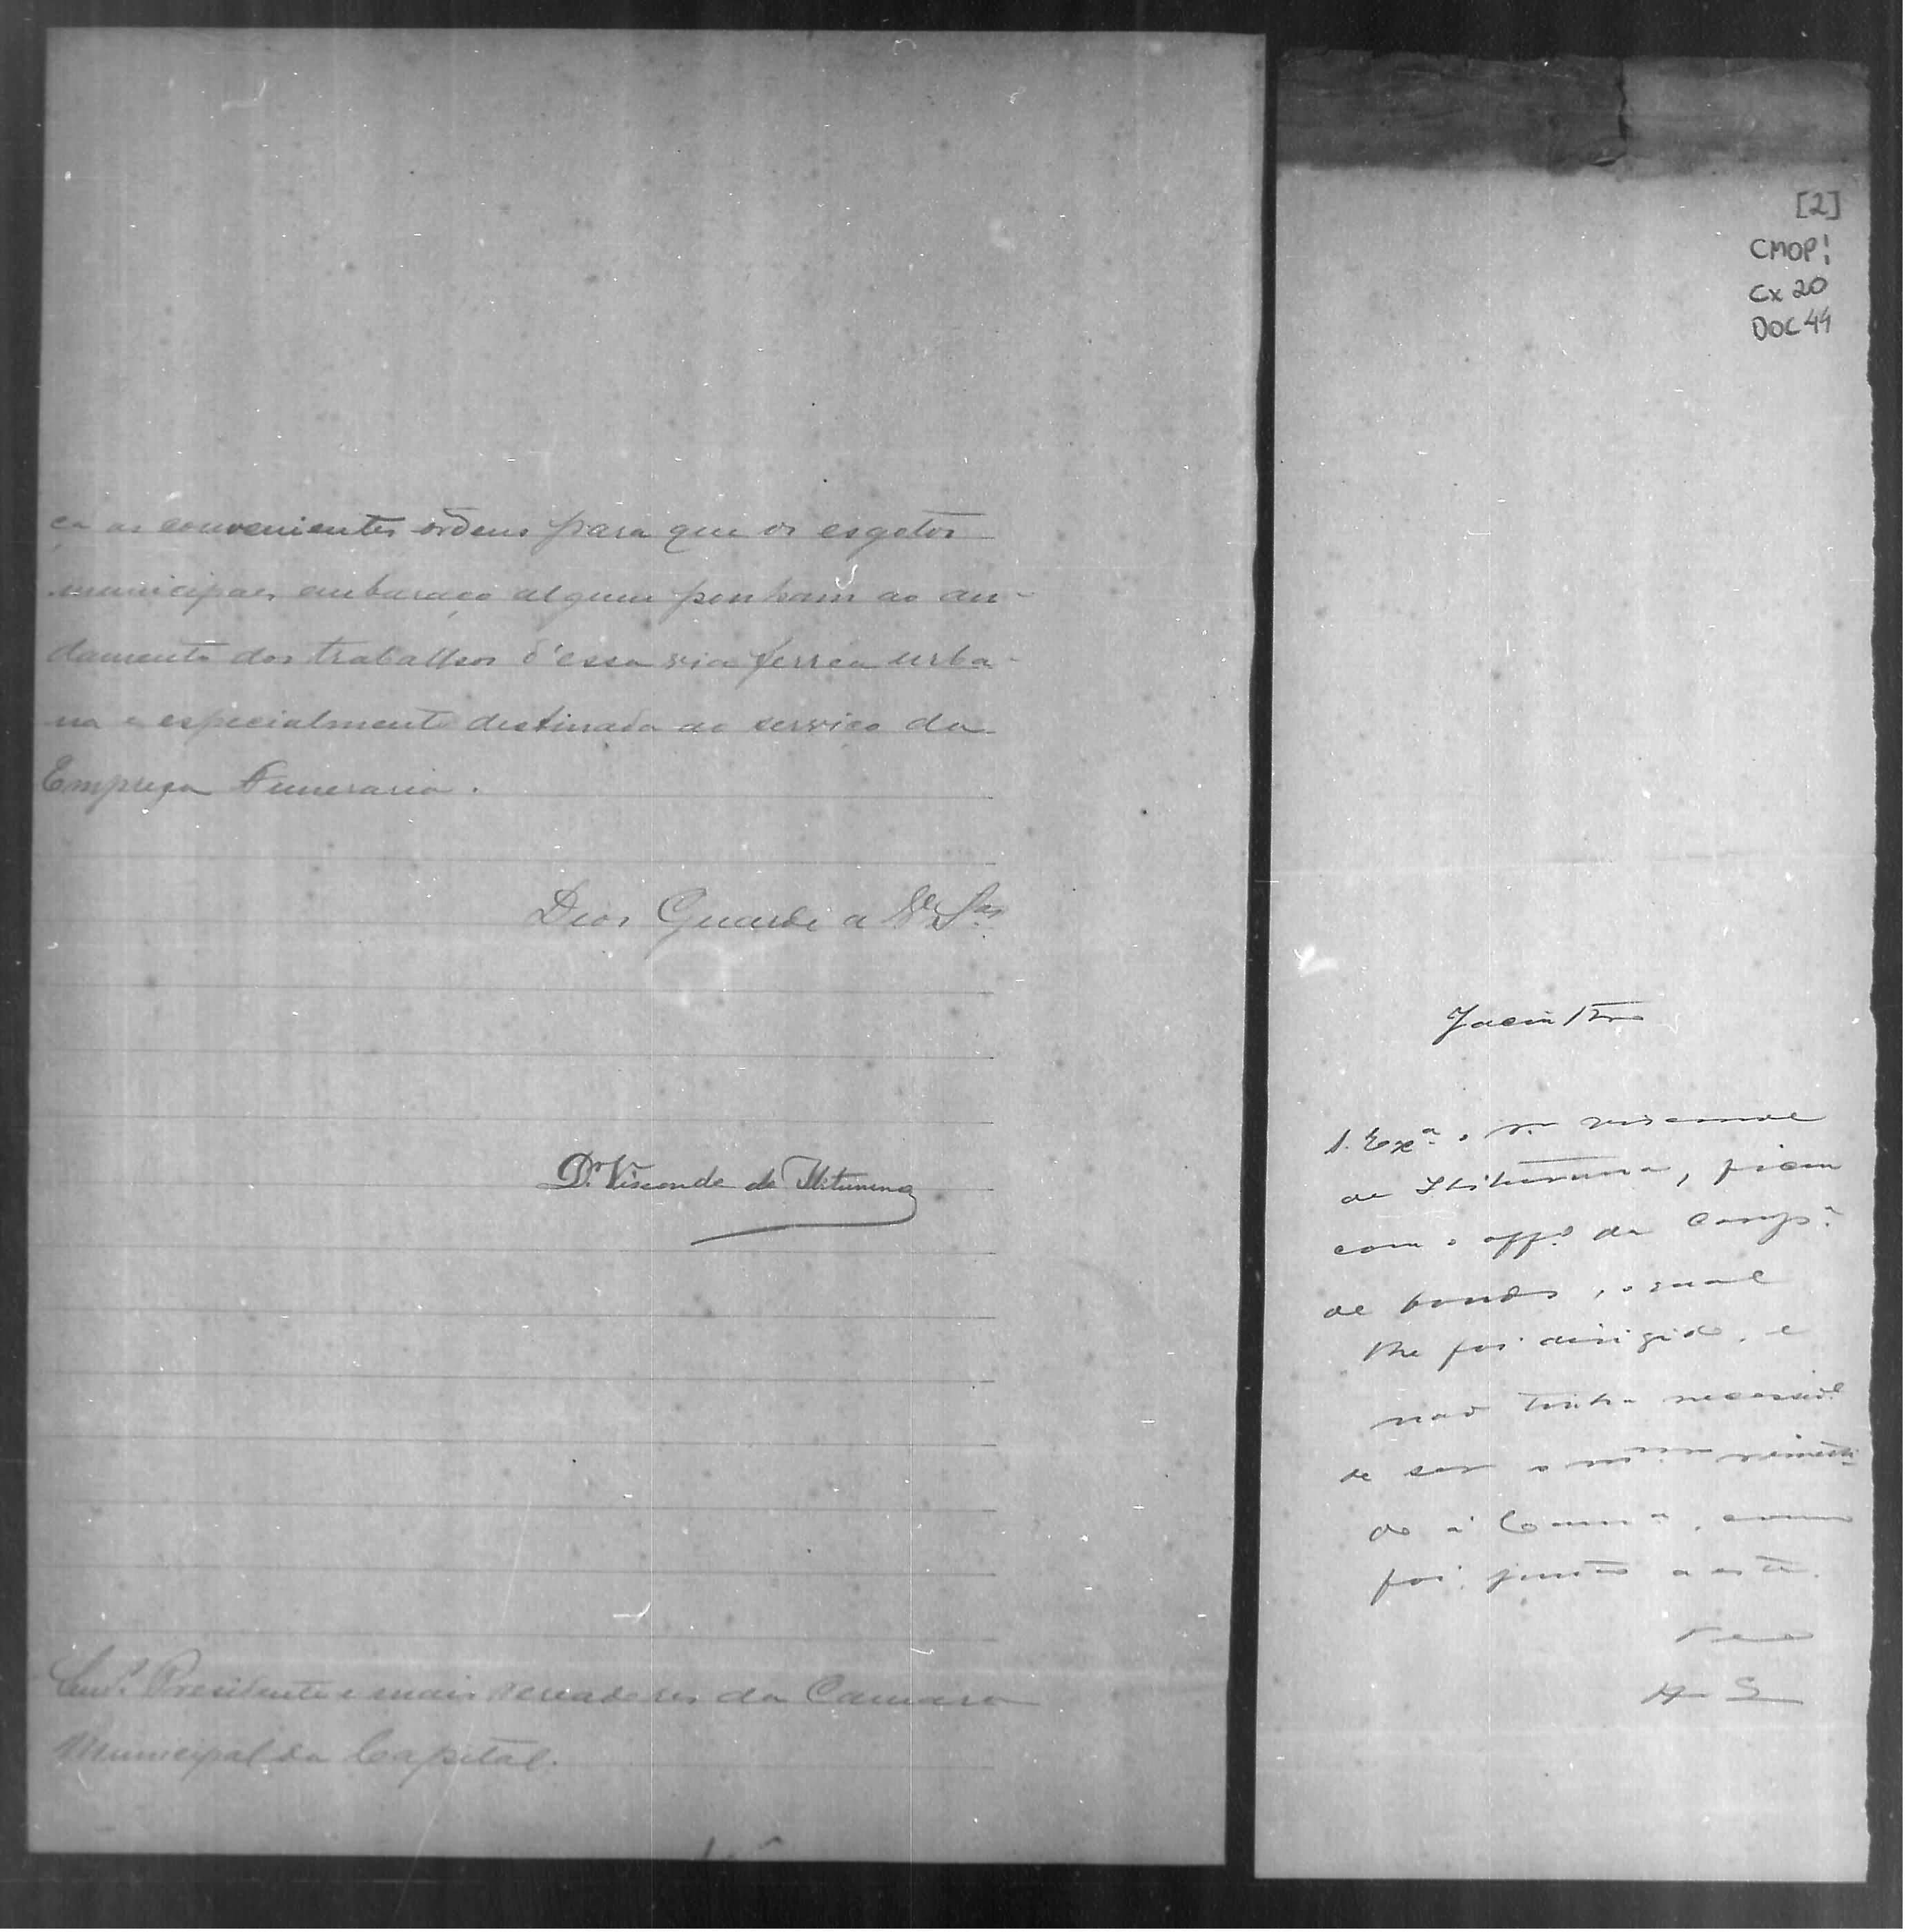 ça as convenientes ordens para que os esgotos
municipaes embaraço algum ponham ao an-
damento dos trabalhos d'essa via ferrea urba-
na e especialmente destinada ao serviço da
Empreza Funeraria.
Deos Guarde a V.as S.as
Dr. Visconde de Ibituruna
Presidente e mais vereadores da Camara
Municipal da Capital.
[2]
CMOP!
Cx 20
DOC 44
Jacintho
S. Ex.ª o sr visconde
de Ibituruna, ficou
com o off.º da Comp.ª
de bonds, o qual
lhe foi dirigido, e
nao tinha necessid.e
de ser o m.mo remetti-
do á Cam.ª, como
foi junto a este.